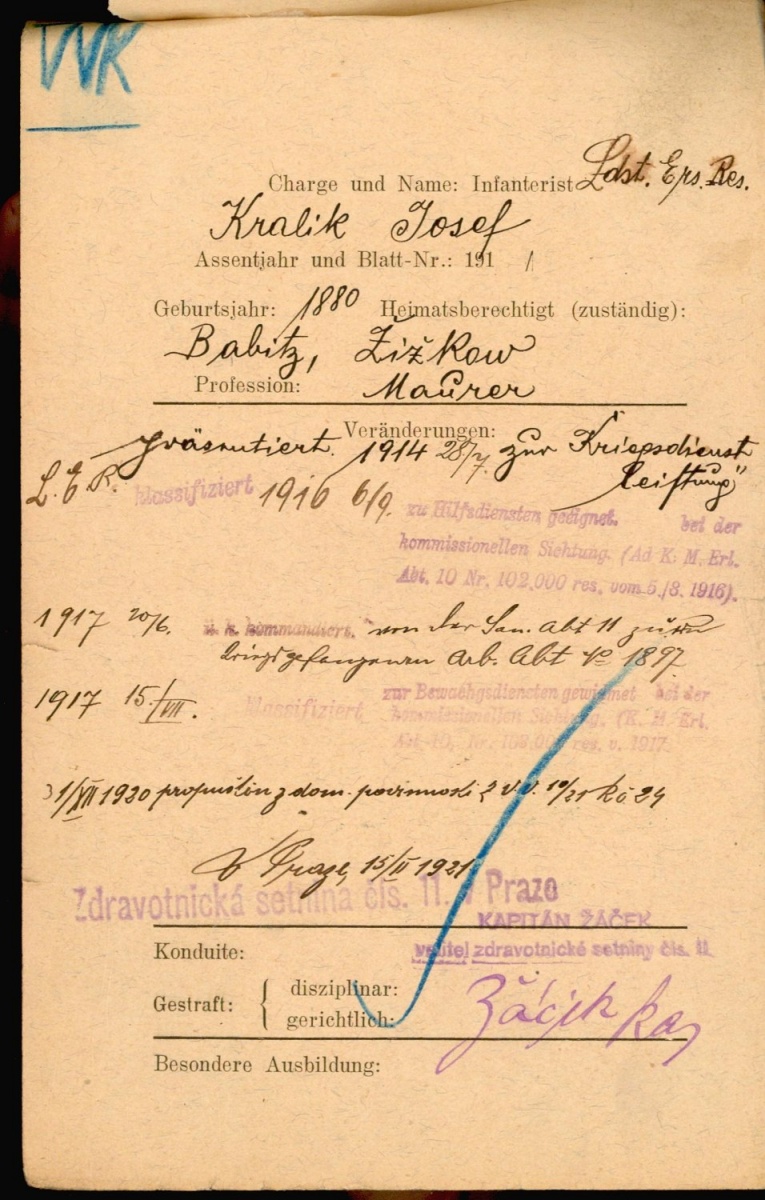 VVK
Charge und Name: Infanterist Ldst. Ers. Res.
Kralik Josef
Assentjahr und Blatt-Nr.: 191 /
Geburtsjahr: 1880 Heimatsberechtigt (zuständig):
Babitz, Žižkow
Profession: Maurer
Veränderungen:
präsentiert 1914 28/7. zur Kriegsdienst
leistung"
L. E. R. klassifiziert 1916 6/9. zu Hilfsdiensten geeignet. bei der
kommissionellen Sichtung. (Ad K. M. Erl.
Abt. 10 Nr. 102.000 res. vom 5./8. 1916).
1917 20/6. kommandiert. von der San. Abt 11 zum
kriegsgefangenen Arb. Abt No 1897
1917 15./VIII. klassifiziert zur Bewachgsdiensten geeignet bei der
kommissionellen Sichtung. (K. M. Erl.
Abt. 10, Nr. res. v. 1917
31/XII 1920 propuštěn z dom. povinnosti v. v. 10/21 24
V Praze, 15/II 1921
Zdravotnická setnina čís. 11. v Praze
KAPITÁN ŽÁČEK
velitel zdravotnické setniny čís. 11.
Konduite:
Gestraft: { disziplinar:
gerichtlich:
Žáček kap
Besondere Ausbildung: